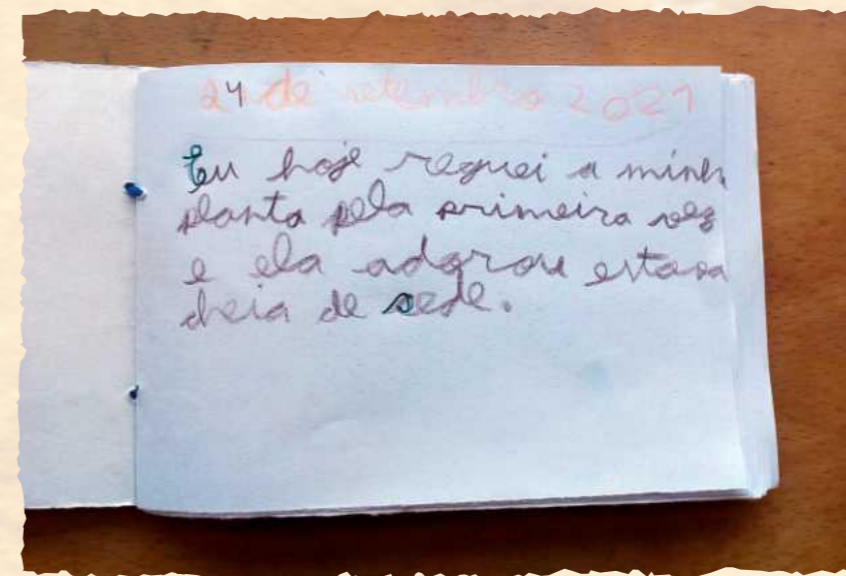 24 de setembro 2021
Eu hoje reguei a minh
planta pela primeira vez
e ela adorou estava
cheia de sede.